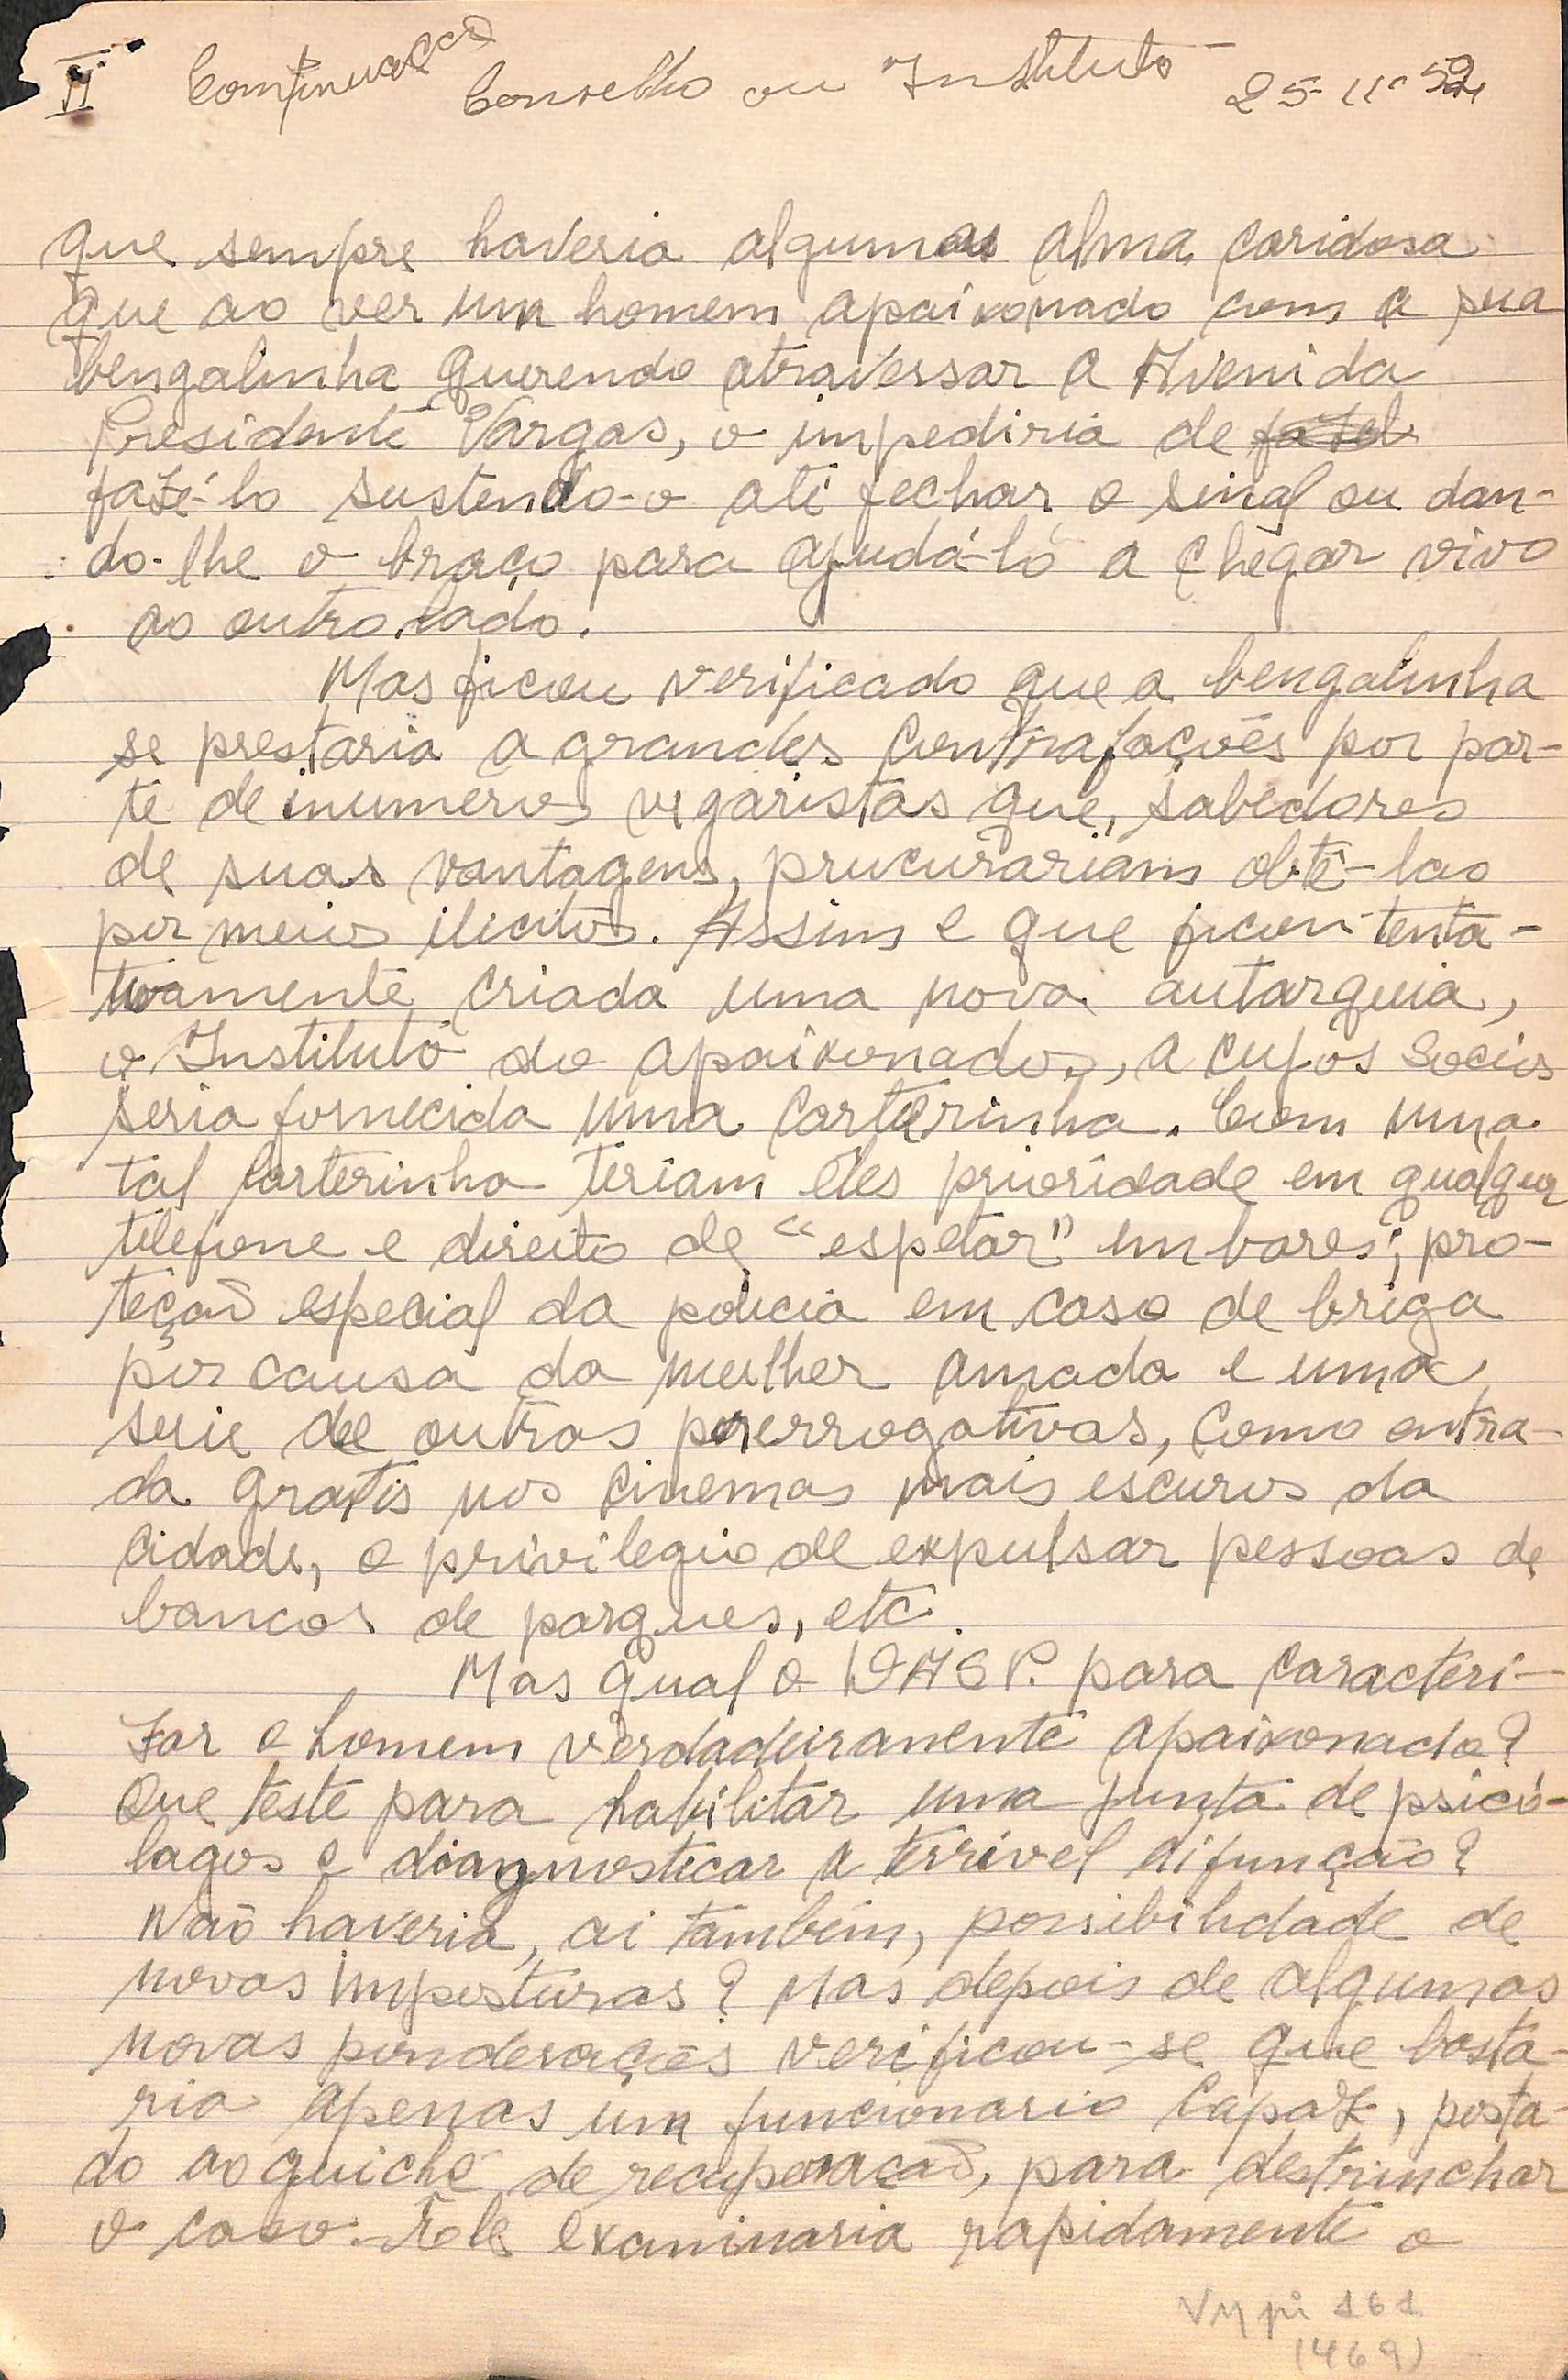 II Continuação Conselho ou Instituto 25-11-52
que sempre haveria algumas alma caridosa
que ao ver um homem apaixonado com a sua
bengalinha querendo atravessar a Avenida
Presidente Vargas, o impediria de fazel
fazê-lo sustendo-o até fechar o sinal ou dan-
do-lhe o braço para ajudá-lo a chegar vivo
ao outro lado.
Mas ficou verificado que a bengalinha
se prestaria a grandes contrafações por par-
te de inumeros vigaristas que, sabedores
de suas vantagens, procurariam obtê-las
por meios ilicitos. Assim e que ficou tenta-
tivamente criada uma nova autarquia,
o Instituto do apaixonados, a cujos Socios
seria fornecida uma carteirinha. Com uma
tal carterinha teriam eles prioridade em qualquer
telefone e direito de "espetar" em bares; pro-
teção especial da policia em caso de briga
por causa da mulher amada e uma
serie de outras prerrogativas, como entra-
da gratis nos cinemas mais escuros da
cidade, o privilegio de expulsar pessoas de
bancos de parques, etc.
Mas qual o DASP. para caracteri-
zar o homem verdadeiramente apaixonado?
Que teste para habilitar uma junta de psicó-
lagos e diagnosticar a terrivel difunção?
Não haveria, ai também, possibilidade de
novas imposturas? Mas depois de algumas
novas ponderações verificou-se que basta-
ria apenas um funcionario capaz, posta-
do ao guichê de recuperação, para destrinchar
o caso. Êle examinaria rapidamente o
VM pi 161
(469)